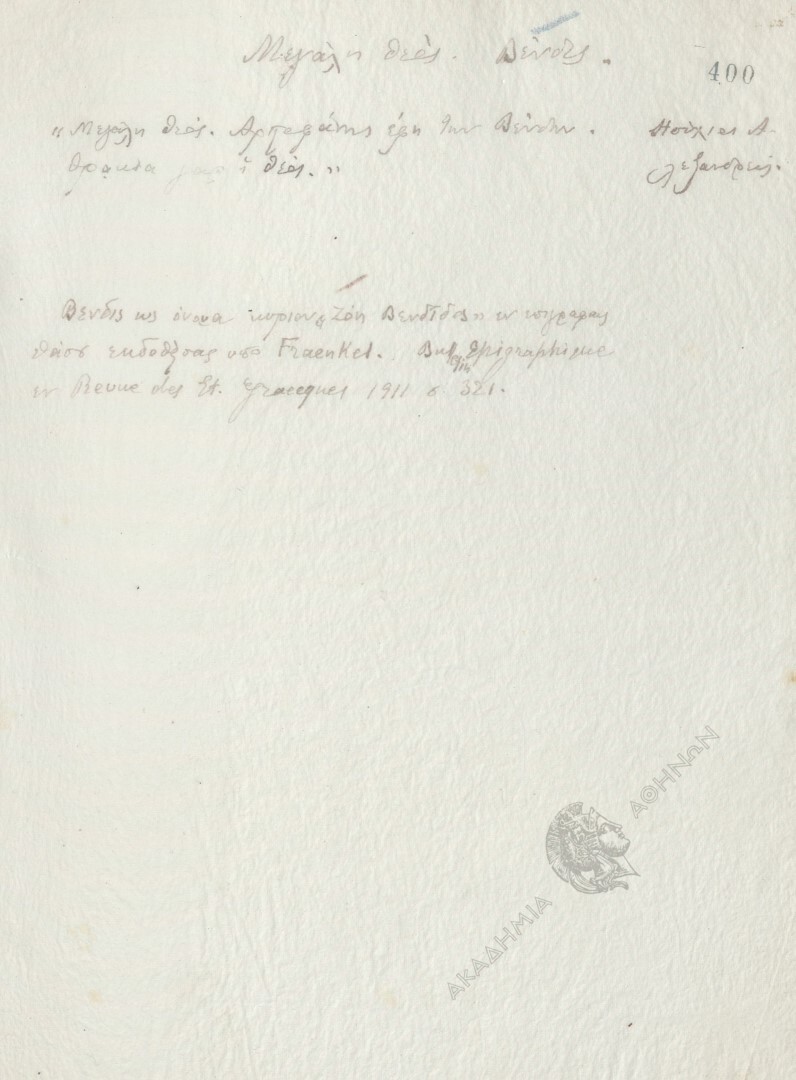 Μεγάλη θεός. Βένδις.
400
"Μεγάλη θεός. Αριστοφάνης έφη την Βένδιν.
Θρακία γαρ ἡ θεός."
Ησύχιος Α-
λεξανδρεύς.
Βενδις ως όνομα κυριον "Ζόη Βενδῖδος" εν επιγραφαις
Θάσου εκδοθείσαις υπό Fraenkel. Bulletin Epigraphique
εν Revue des Et. Grecques 1911 σ 321.
ΑΚΑΔΗΜΙΑ ΑΘΗΝΩΝ